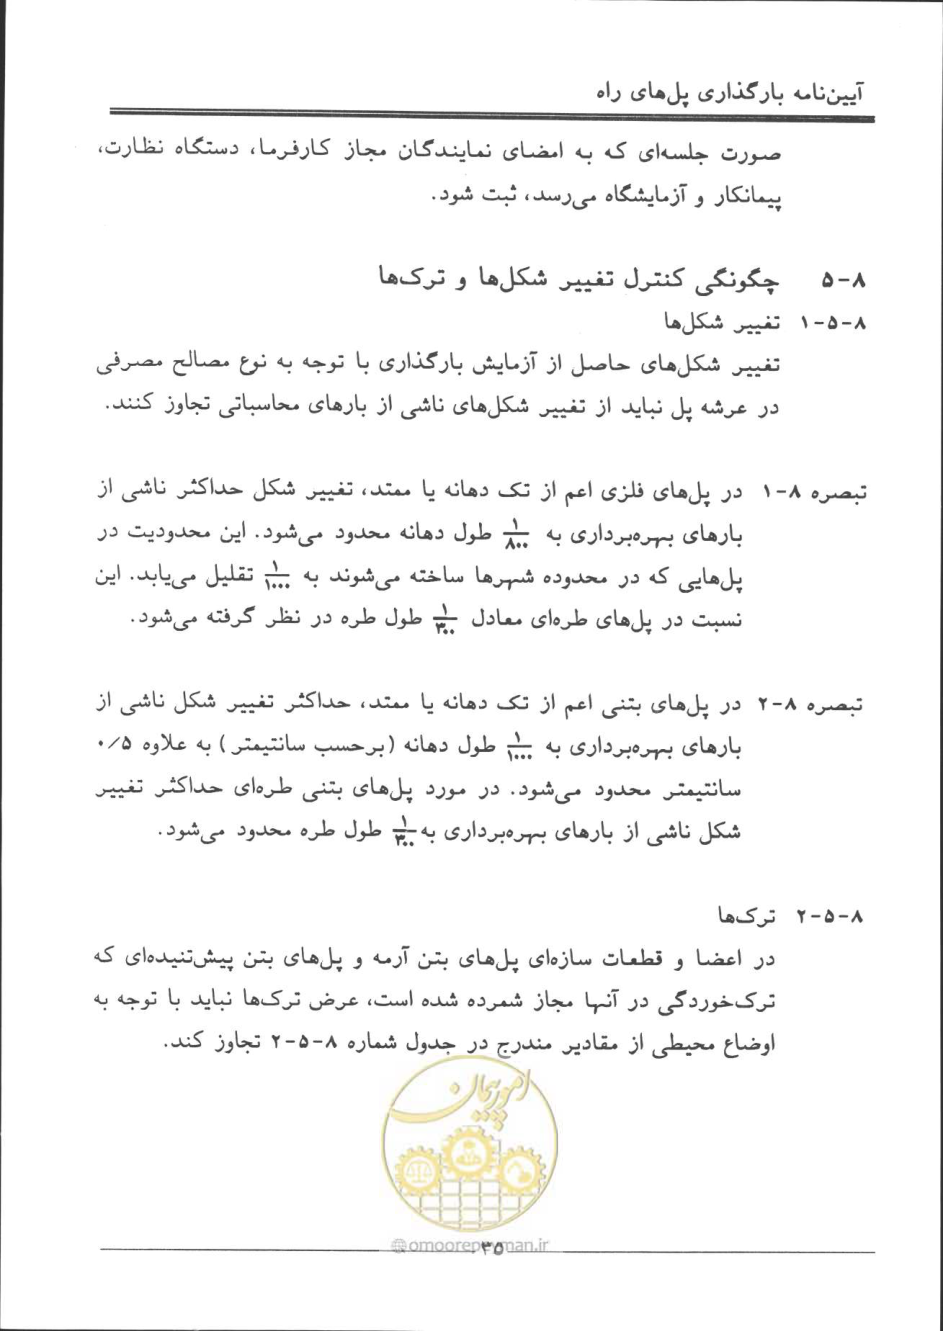 آیین‌نامه بارگذاری پل‌های راه
صورت جلسه‌ای که به امضای نمایندگان مجاز کارفرما، دستگاه نظارت،
پیمانکار و آزمایشگاه می‌رسد، ثبت شود.
۸-۵ چگونگی کنترل تغییر شکل‌ها و ترک‌ها
۸-۵-۱ تغییر شکل‌ها
تغییر شکل‌های حاصل از آزمایش بارگذاری با توجه به نوع مصالح مصرفی
در عرشه پل نباید از تغییر شکل‌های ناشی از بارهای محاسباتی تجاوز کنند.
تبصره ۸-۱ در پل‌های فلزی اعم از تک دهانه یا ممتد، تغییر شکل حداکثر ناشی از
بارهای بهره‌برداری به ۱/۸۰۰ طول دهانه محدود می‌شود. این محدودیت در
پل‌هایی که در محدوده شهرها ساخته می‌شوند به ۱/۱۰۰۰ تقلیل می‌یابد. این
نسبت در پل‌های طره‌ای معادل ۱/۳۰۰ طول طره در نظر گرفته می‌شود.
تبصره ۸-۲ در پل‌های بتنی اعم از تک دهانه یا ممتد، حداکثر تغییر شکل ناشی از
بارهای بهره‌برداری به ۱/۱۰۰۰ طول دهانه (برحسب سانتیمتر) به علاوه ۰/۵
سانتیمتر محدود می‌شود. در مورد پل‌های بتنی طره‌ای حداکثر تغییر
شکل ناشی از بارهای بهره‌برداری به ۱/۳۰۰ طول طره محدود می‌شود.
۸-۵-۲ ترک‌ها
در اعضا و قطعات سازه‌ای پل‌های بتن آرمه و پل‌های بتن پیش‌تنیده‌ای که
ترک‌خوردگی در آنها مجاز شمرده شده است، عرض ترک‌ها نباید با توجه به
اوضاع محیطی از مقادیر مندرج در جدول شماره ۸-۵-۲ تجاوز کند.
امور پیمان
@omoorepeyman.ir
۳۵